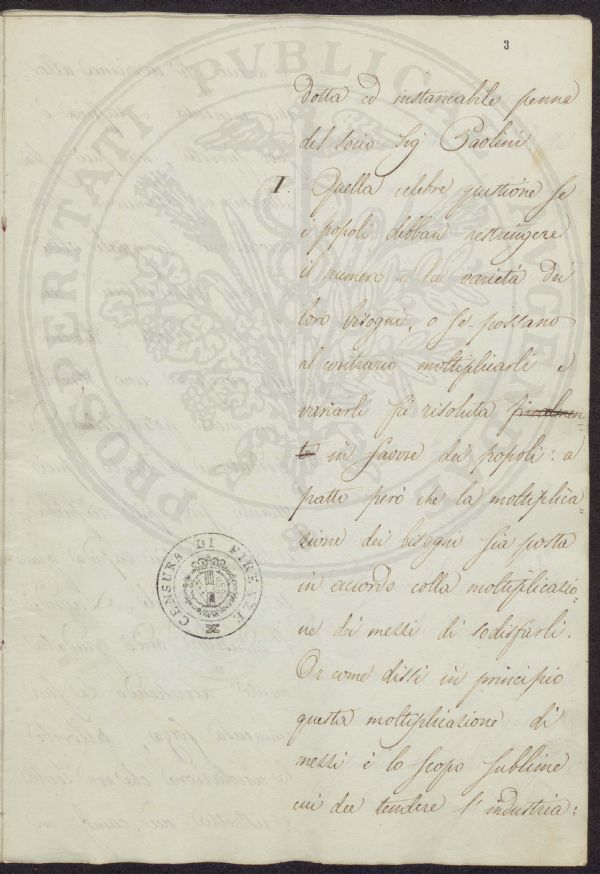 3
dotta ed instancabile penna
del socio Sig Paolini.
I. Quella celebre quistione se
i popoli debban restringere
il numero e la varietà dei
loro bisogni, o se possano
al contrario moltiplicarli e
variarli fù risoluta finalmen-
te in favore dei popoli: a
patto però che la moltiplica-
zione dei bisogni sia posta
in accordo colla moltiplicazio-
ne dei mezzi di sodisfarli.
Or come dissi in principio
questa moltiplicazione di
mezzi è lo scopo sublime
cui dee tendere l'industria:
CENSURA DI FIRENZE
PROSPERITATI PUBLICAE